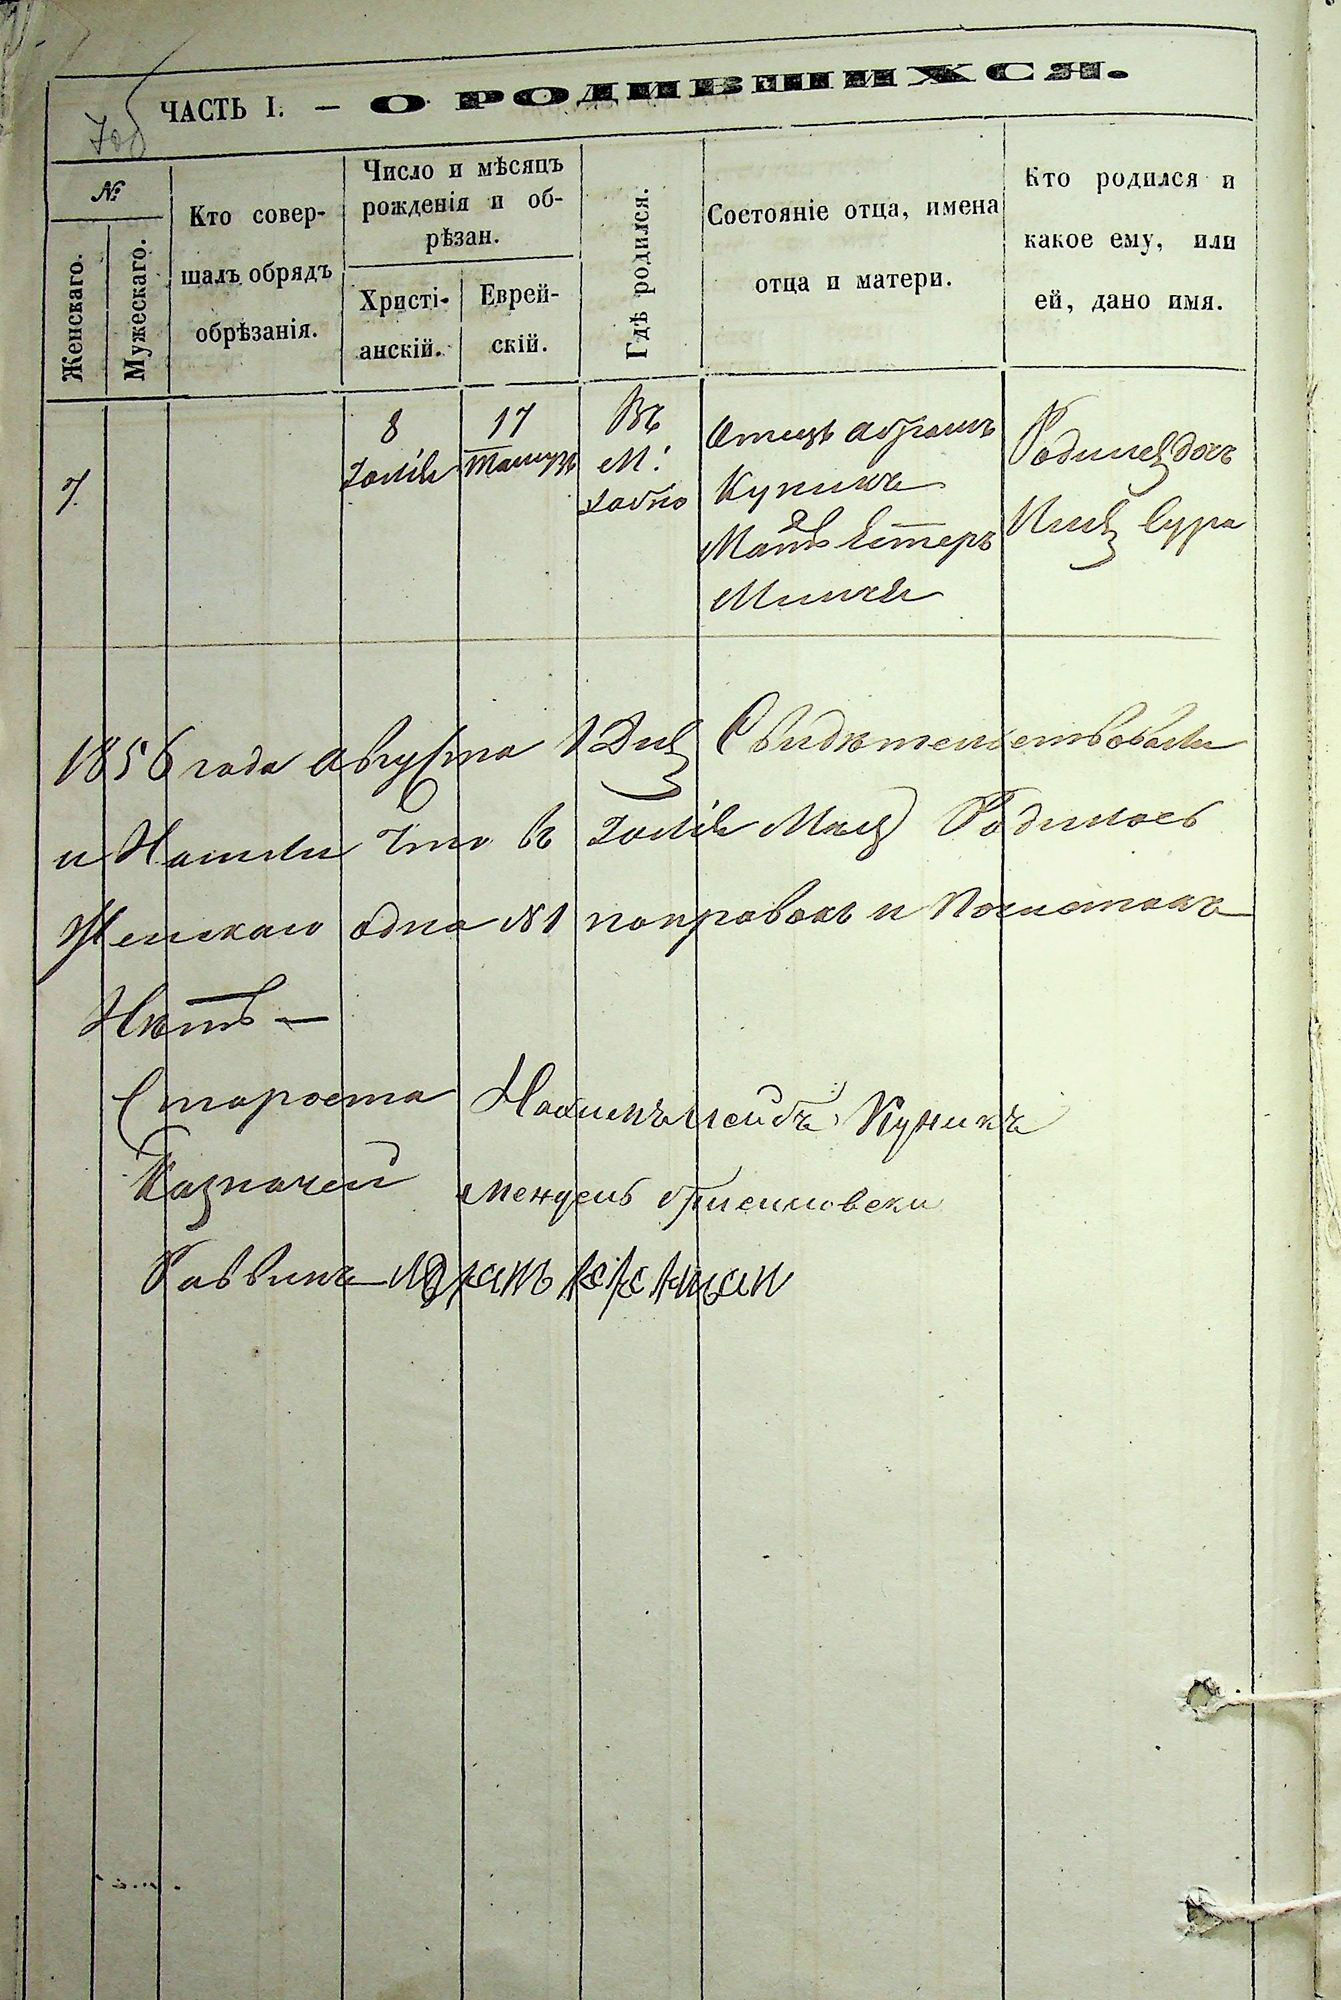 ЧАСТЬ I. — О РОДИВШИХСЯ.
№
Женскаго.
Мужескаго.
Кто совер-
шалъ обрядъ
обрѣзанія.
Число и мѣсяцъ
рожденія и об-
рѣзан.
Христі-
анскій.
Еврей-
скій.
Гдѣ родился.
Состояніе отца, имена
отца и матери.
Кто родился и
какое ему, или
ей, дано имя.
7.
8
Іюлія
17
Тамузъ
Въ
М:
Хабно
Отецъ Абрамъ
Куникъ
Мать Естеръ
Родилась дочь
Имя Сура
1856 года Августа 1 Дня Свидѣтельствовали
и Нашли Что въ Іюлѣ Мцѣ Родилось
Женскаго одна №1 поправокъ и Почистокъ
Нѣтъ —
Староста Куникъ
Казначей Мендель
Раввинъ